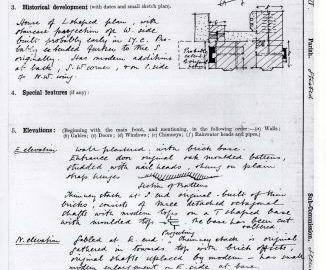 3. Historical development (with dates and small sketch plan).
House of L shaped plan, with
staircase projection of W. side
built probably early in 17.C. Pro-
bably extended further to the S.
originally. Has modern additions
at back, S.W. corner, & on S. side
of N.W. wing.
Parish.
4. Special features (if any):
5. Elevations: (Beginning with the main front, and mentioning, in the following order:—(a) Walls;
(b) Gables; (c) Doors; (d) Windows; (e) Chimneys; (f) Rainwater heads and pipes.)
E. elevation Walls plastered, with brick base.
Entrance door original oak moulded battens,
studded with nail heads, hung on plain
strap hinges
Section of Battens
Chimney stack at S. end original - built of thin
bricks, consists of three detached octagonal
shafts with modern tops on a T shaped base
with moulded top. The base has been cut
Projecting
N. elevation Gabled at E. end. Chimney stack original
gathered in towards top with brick offsets,
original shafts replaced by modern - has small
modern enlargement on E. side at base.
Sub-Commission